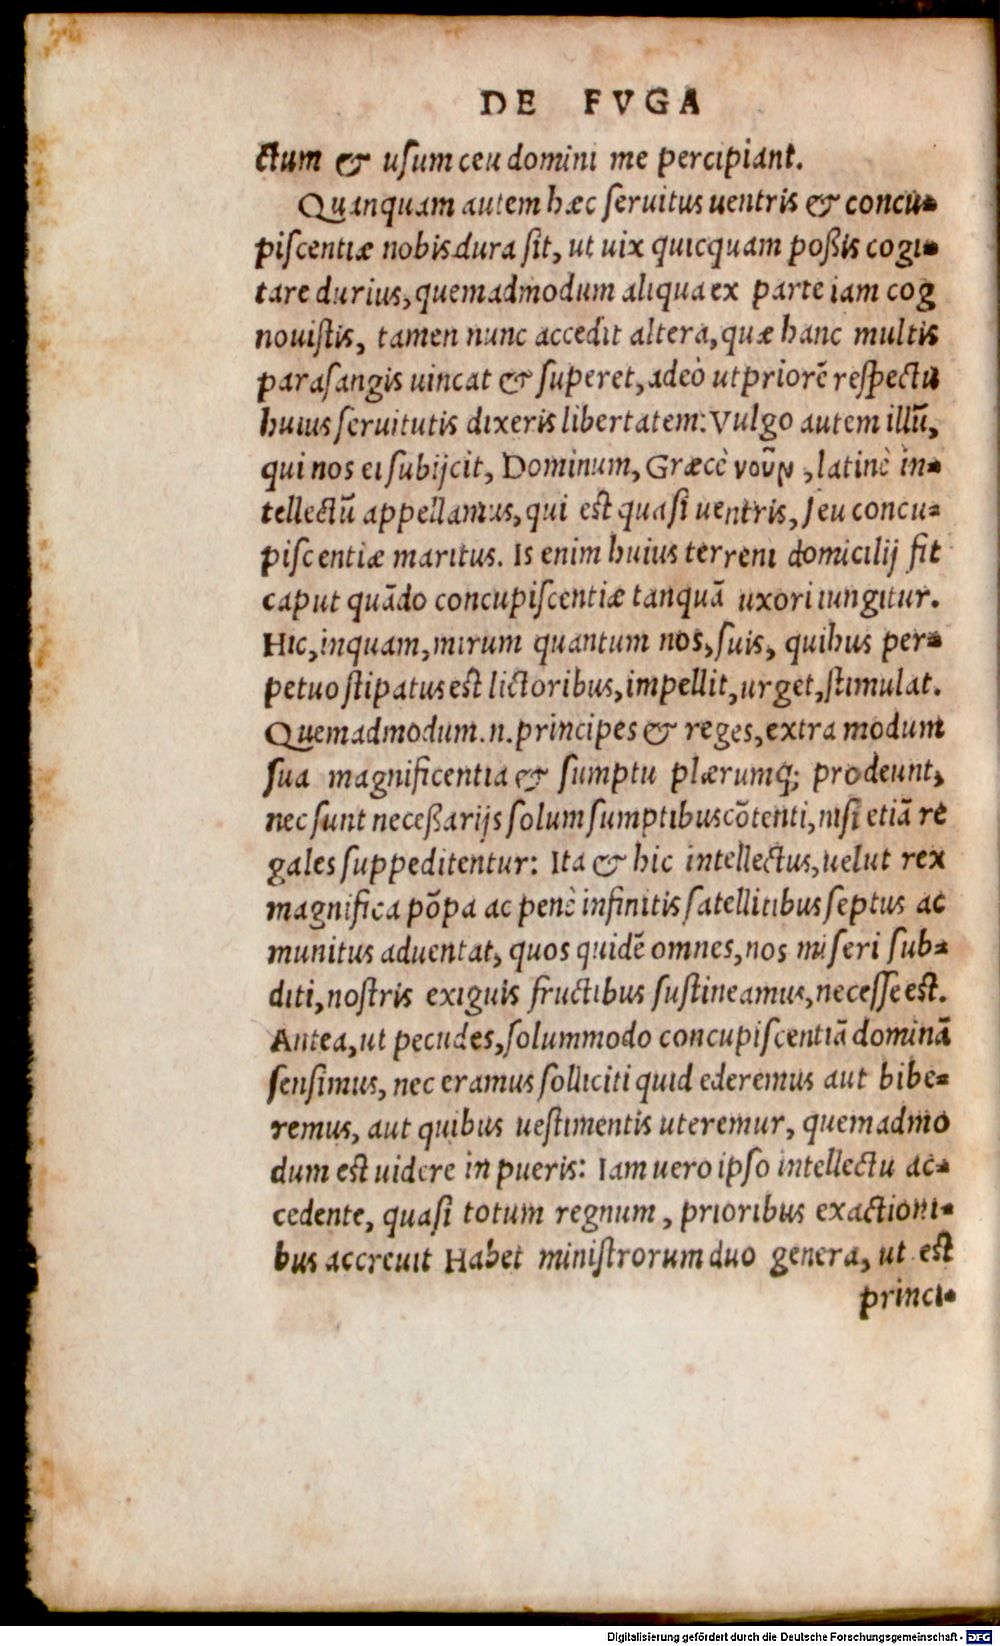 DE FVGA
ctum & uſum ceu domini me percipiant.
Quanquam autem hæc ſeruitus uentris & concu-
piſcentiæ nobis dura ſit, ut uix quicquam poßis cogi-
tare durius, quemadmodum aliqua ex parte iam cog
nouiſtis, tamen nunc accedit altera, quæ hanc multis
paraſangis uincat & ſuperet, adeò ut priorē reſpectu
huius ſeruitutis dixeris libertatem: Vulgo autem illū,
qui nos ei ſubijcit, Dominum, Græcè νοῦν, latinè in-
tellectū appellamus, qui est quaſi uentris, ſeu concu-
piſcentiæ maritus. Is enim huius terreni domicilij fit
caput quādo concupiſcentiæ tanquā uxori iungitur.
Hic, inquam, mirum quantum nos, ſuis, quibus per-
petuo ſtipatus est lictoribus, impellit, urget, ſtimulat.
Quemadmodum .n. principes & reges, extra modum
ſua magnificentia & ſumptu plærumq; prodeunt,
nec ſunt neceßarijs ſolum ſumptibus cōtenti, niſi etiā re
gales ſuppeditentur: Ita & hic intellectus, uelut rex
magnifica pōpa ac penè infinitis ſatellitibus ſeptus ac
munitus aduentat, quos quidē omnes, nos miſeri ſub-
diti, noſtris exiguis fructibus ſuſtineamus, neceſſe est.
Antea, ut pecudes, ſolummodo concupiſcentiā dominā
ſenſimus, nec eramus ſolliciti quid ederemus aut bibe-
remus, aut quibus ueſtimentis uteremur, quemadmo
dum est uidere in pueris: Iam uero ipſo intellectu ac-
cedente, quaſi totum regnum, prioribus exactioni-
bus accreuit Habet miniſtrorum duo genera, ut est
princi-
Digitalisierung gefördert durch die Deutsche Forschungsgemeinschaft - DFG